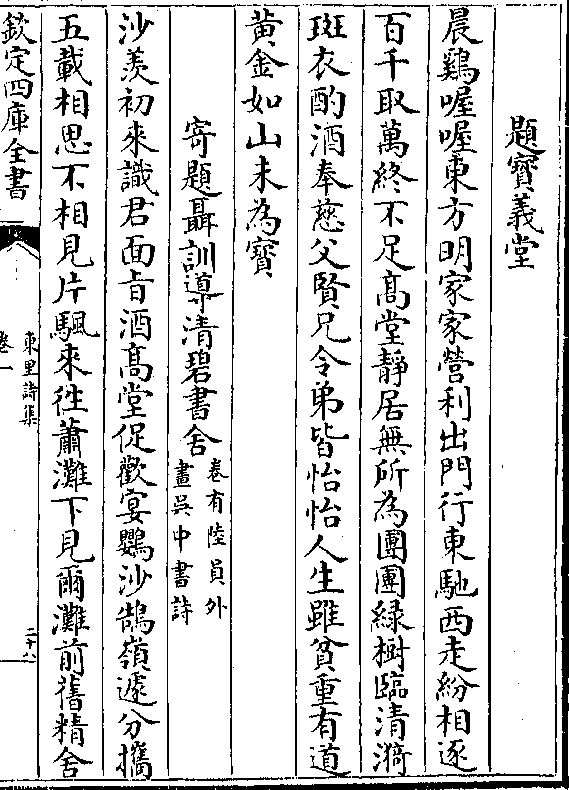 題寳義堂
晨鷄喔喔東方明家家營利出門行東馳西走紛相逐
百千取萬終不足髙堂靜居無所為團團緑樹臨清漪
斑衣酌酒奉慈父賢兄令弟皆怡怡人生雖貧重有道
黄金如山未為寳
寄題聶訓導清碧書舍
卷有陸員外
畫吳中書詩
沙羨初來識君面㫖酒髙堂促歡宴鸚沙鵠嶺遽分攜
五載相思不相見片颿來往蕭灘下見爾灘前舊精舍
欽定四庫全書
東里詩集
卷一
二十八